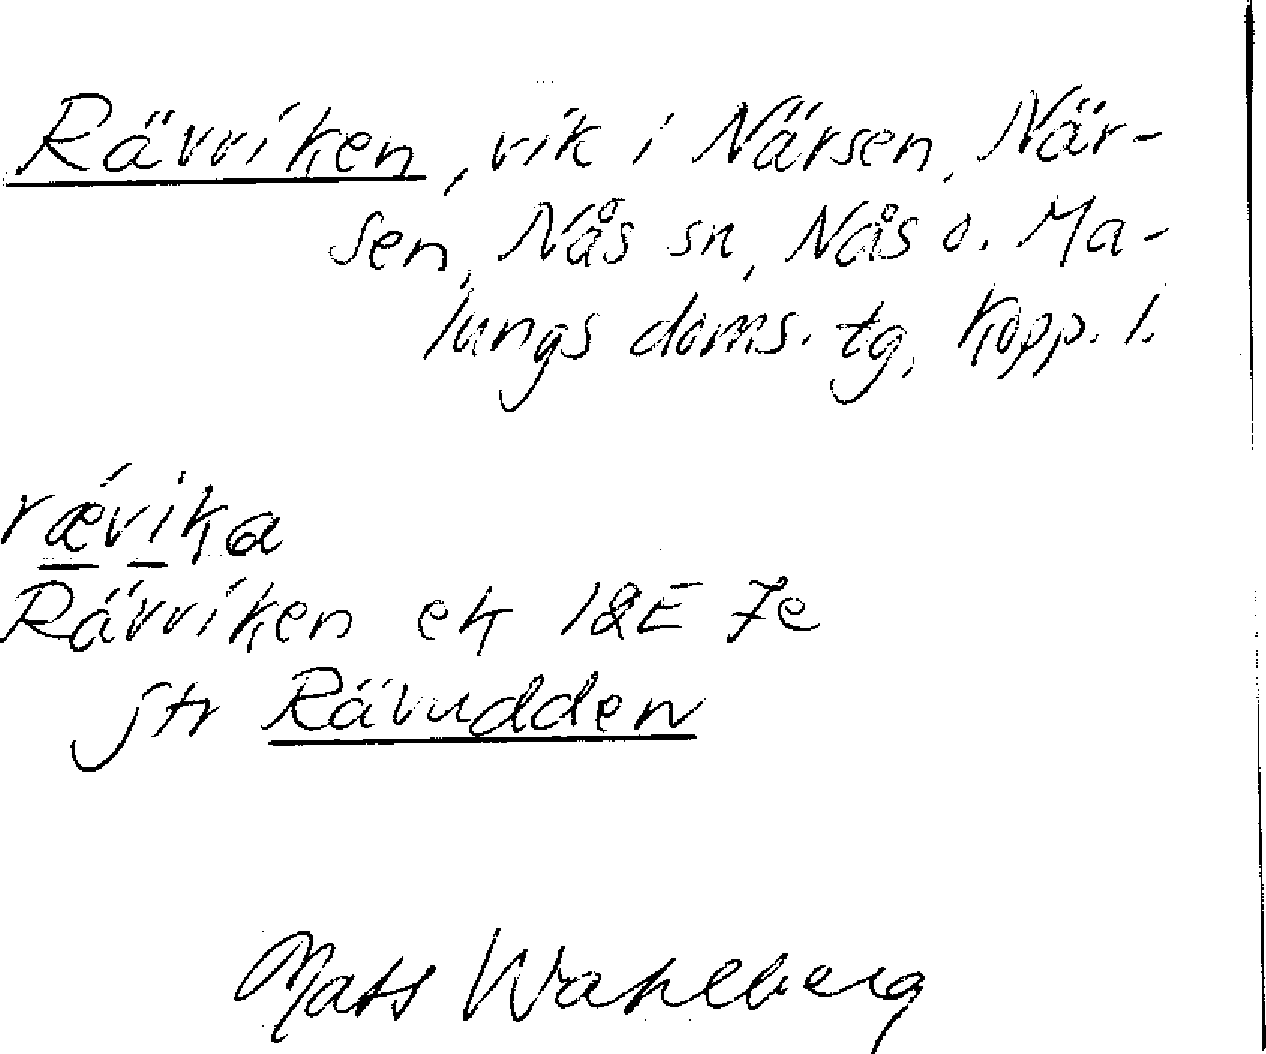 Rävviken, vik i Närsen, När-
sen, Nås sn, Nås o. Ma-
lungs doms. tg, Kopp. l.
rǽvika
Rävviken ek 12E 7e
jfr Rävudden
Mats Wahlberg